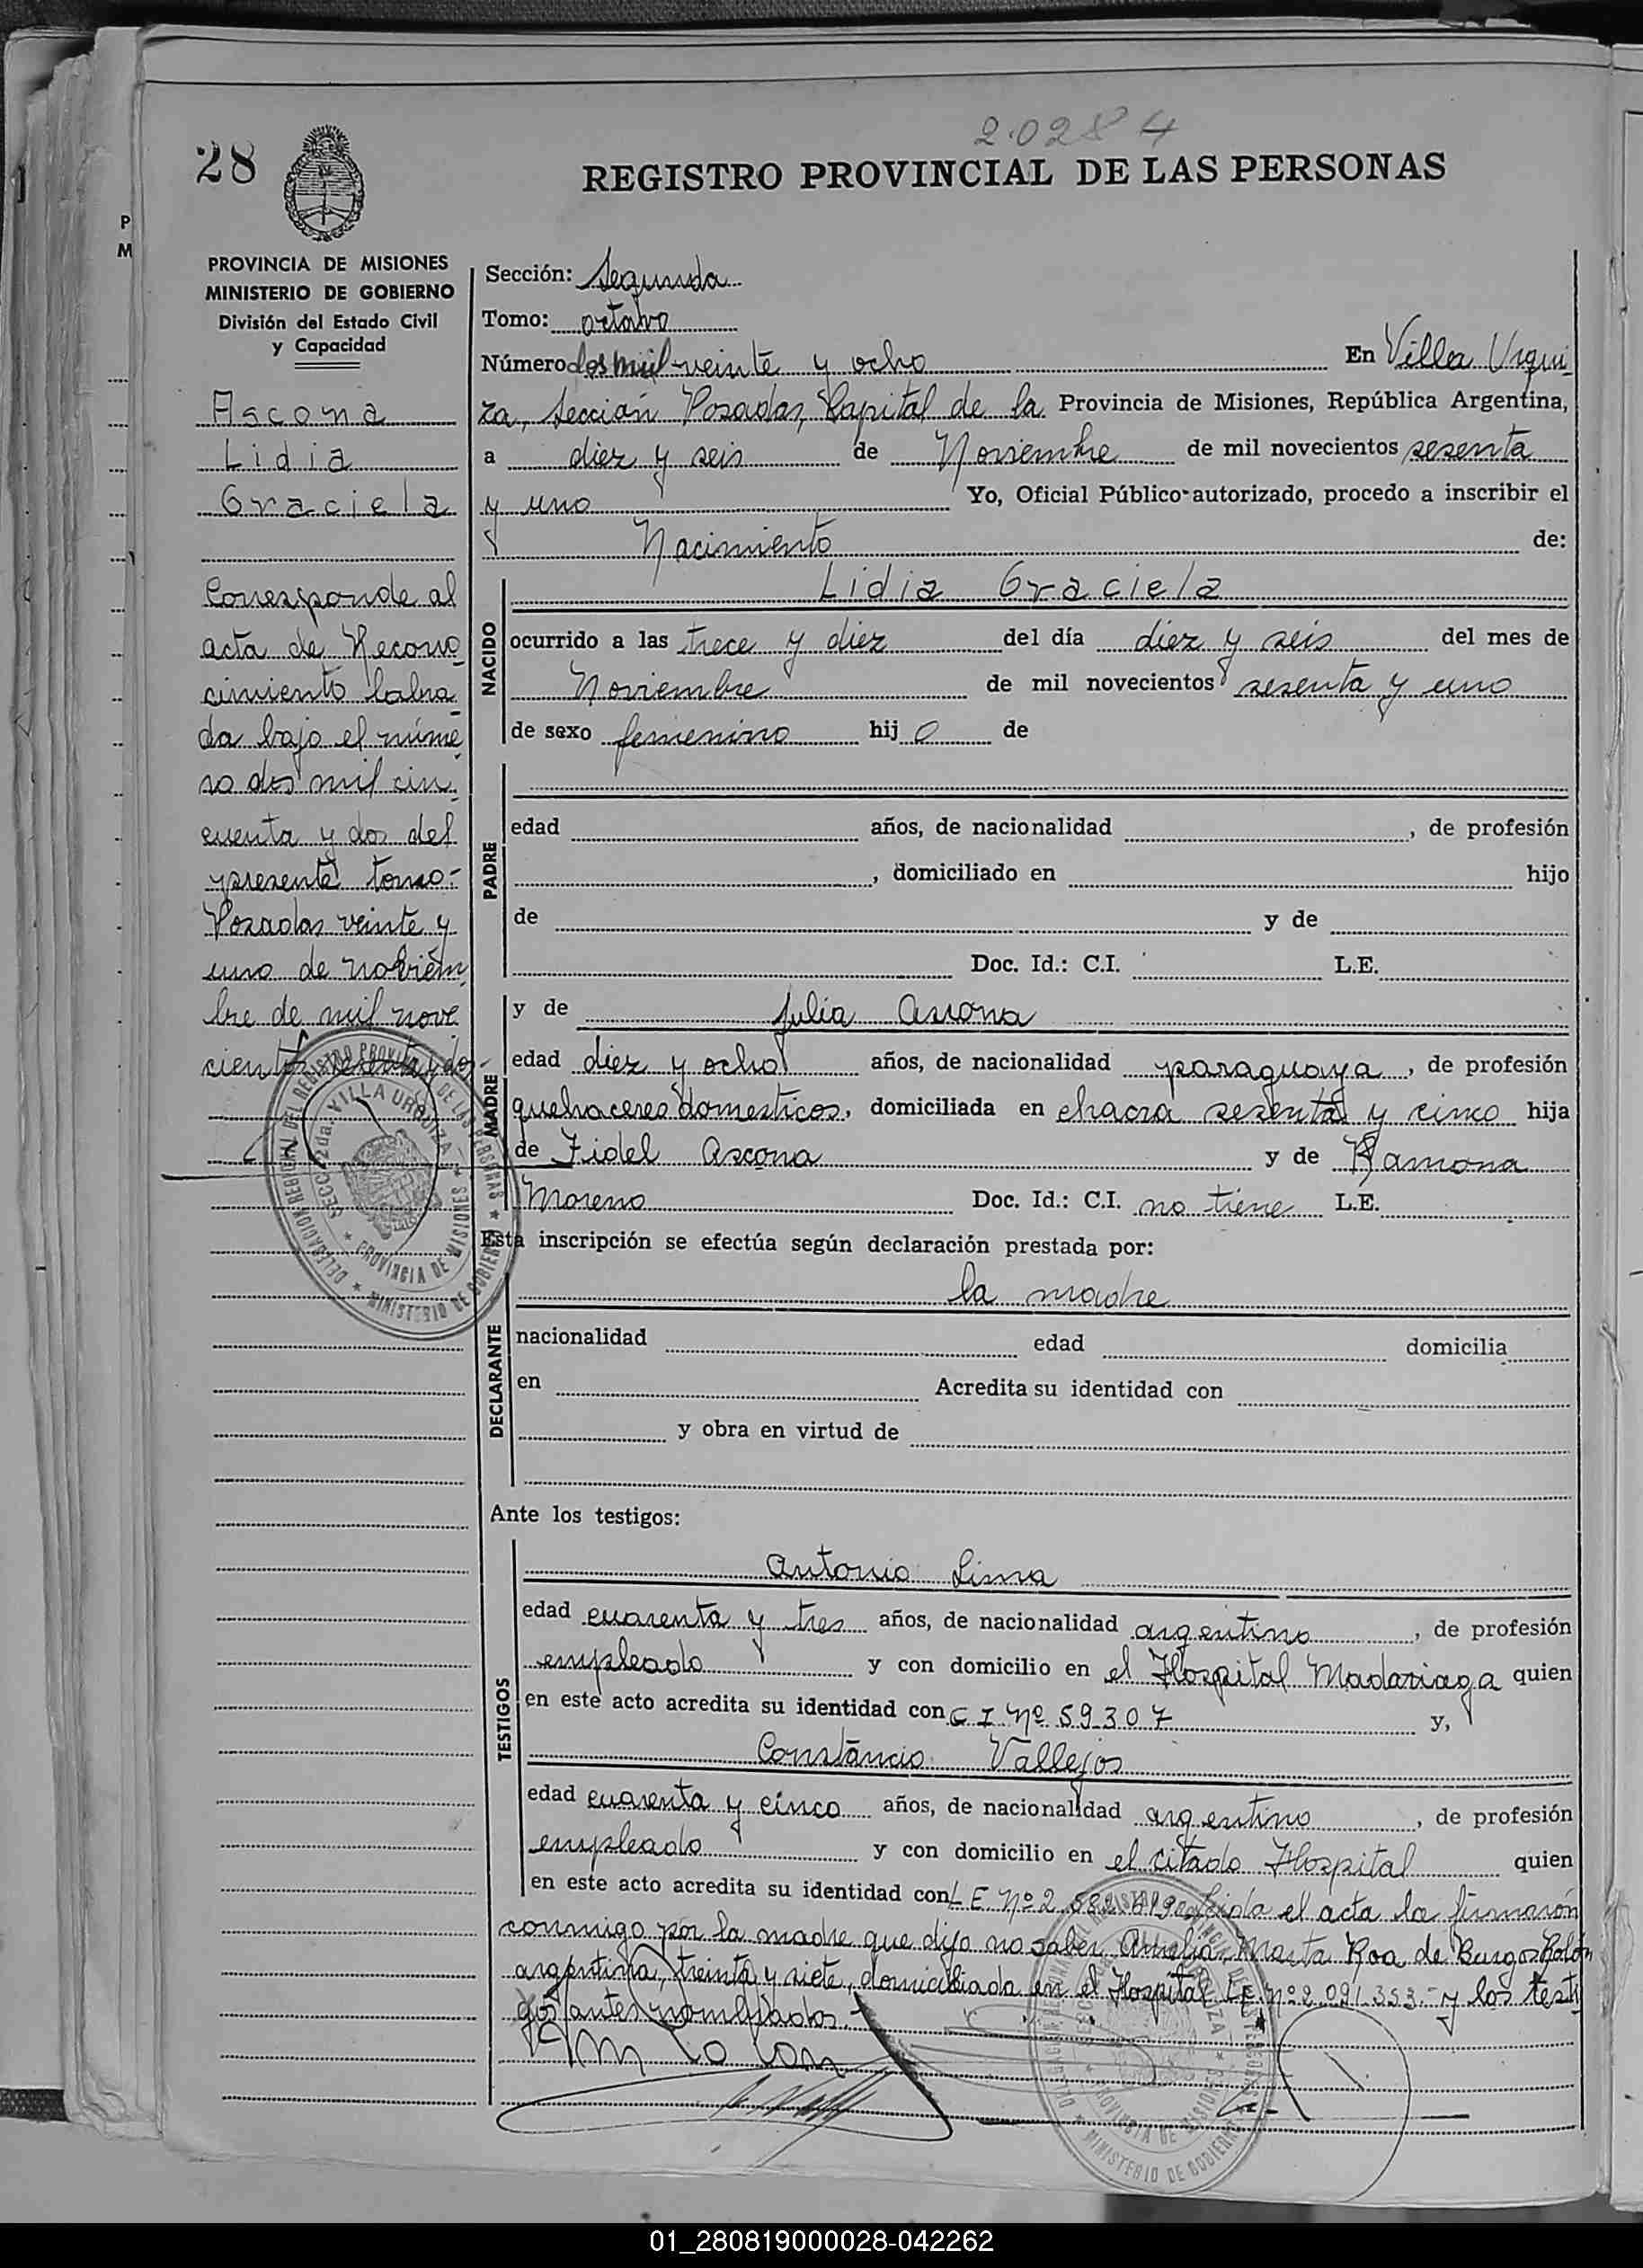 2.0284
28
REGISTRO PROVINCIAL DE LAS PERSONAS
P
M
PROVINCIA DE MISIONES
MINISTERIO DE GOBIERNO
División del Estado Civil
y Capacidad
Ascona
Lidia
Graciela
Corresponde al
acta de Recono
cimiento labra
da bajo el núme
ro dos mil cin
cuenta y dos del
presente tomo.-
Posadas veinte y
uno de noviem
bre de mil nove
cientos sesenta y dos-
Sección: Segunda
Tomo: octavo
Número dos mil veinte y ocho En Villa Urqui
za, Sección Posadas, Capital de la Provincia de Misiones, República Argentina,
a diez y seis de Noviembre de mil novecientos sesenta
y uno Yo, Oficial Público autorizado, procedo a inscribir el
Nacimiento de:
NACIDO
Lidia Graciela
ocurrido a las trece y diez del día diez y seis del mes de
Noviembre de mil novecientos sesenta y uno
de sexo femenino hij o de
PADRE
edad años, de nacionalidad , de profesión
, domiciliado en hijo
de y de
Doc. Id.: C.I. L.E.
MADRE
y de Julia Ascona
edad diez y ocho años, de nacionalidad paraguaya, de profesión
quehaceres domesticos, domiciliada en chacra sesenta y cinco hija
de Fidel Ascona y de Ramona
Moreno Doc. Id.: C.I. no tiene L.E.
Esta inscripción se efectúa según declaración prestada por:
DECLARANTE
la madre
nacionalidad edad domicilia
en Acredita su identidad con
y obra en virtud de
Ante los testigos:
TESTIGOS
Antonio Lima
edad cuarenta y tres años, de nacionalidad argentino, de profesión
empleado y con domicilio en el Hospital Madariaga quien
en este acto acredita su identidad con C I Nº 59307 y,
Constancio Vallejos
edad cuarenta y cinco años, de nacionalidad argentino, de profesión
empleado y con domicilio en el citado Hospital quien
en este acto acredita su identidad con L E Nº 2 el acta la firmaron
conmigo por la madre que dijo no saber, Marta Roa de Burgos
argentina, treinta y siete, domiciliada en el Hospital L.E. nº 2.091.353.- y los testi
gos antes nombrados.-
DELEGACION REGIONAL DEL REGISTRO PROVINCIAL DE LAS PERSONAS
SECC. 2da. VILLA URQUIZA
PROVINCIA DE MISIONES
MINISTERIO DE GOBIERNO
PROVINCIA DE MISIONES
MINISTERIO DE GOBIERNO
01_280819000028-042262